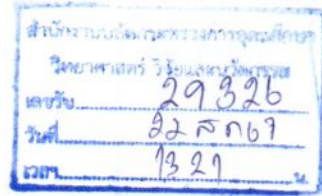 สำนักงานปลัดกระทรวงการอุดมศึกษา
วิทยาศาสตร์ วิจัยและนวัตกรรม
เลขรับ 29326
วันที่ 22 สค 67
เวลา 13 21 น.